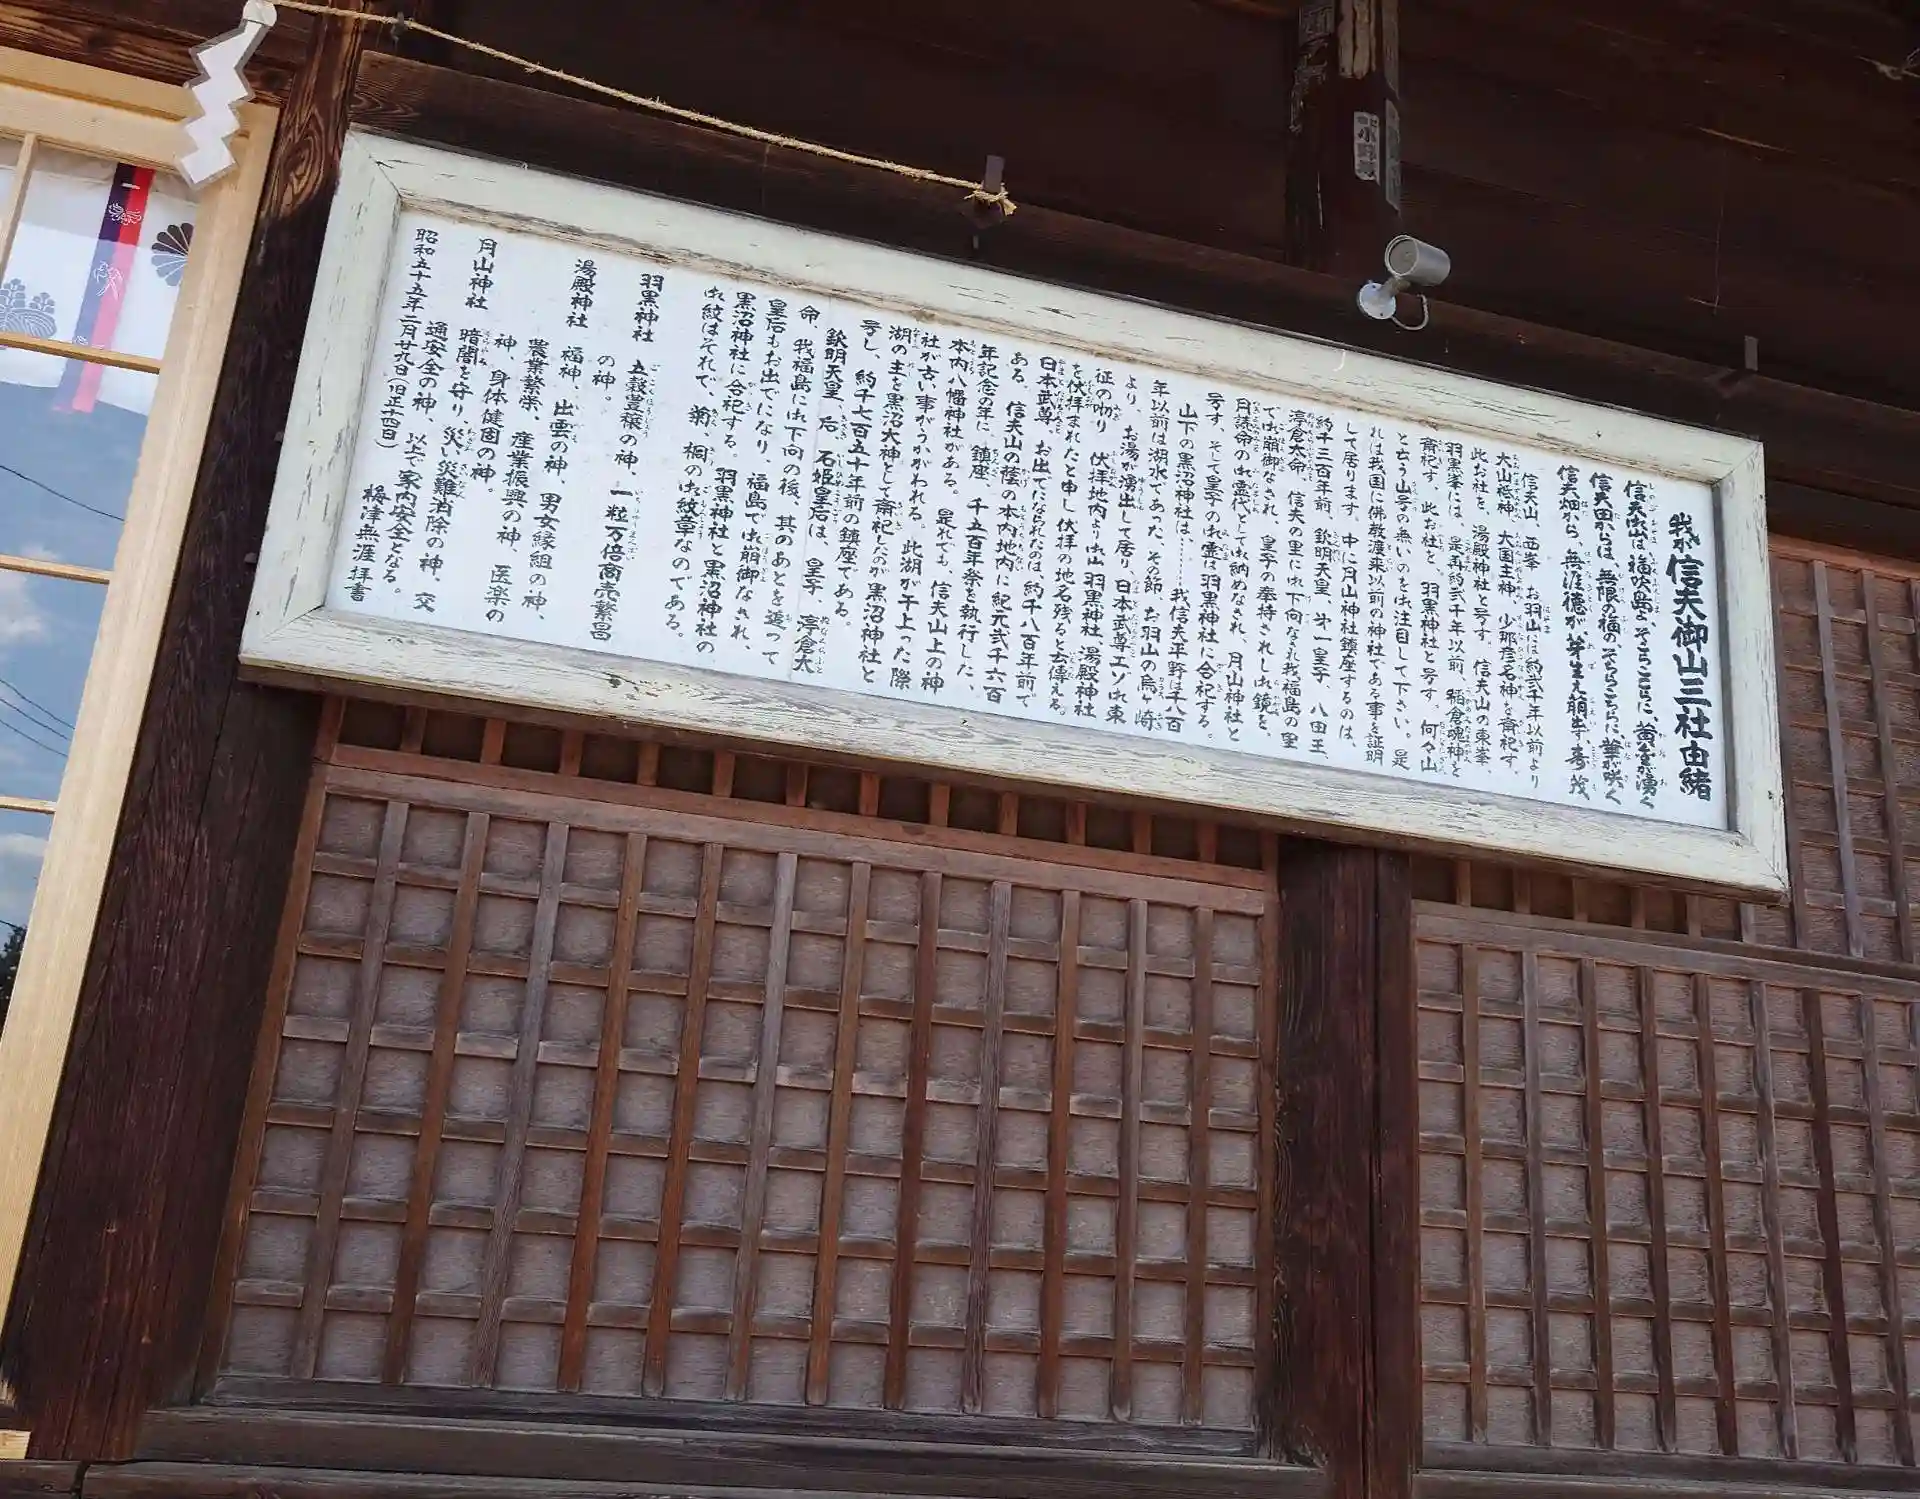 我が信夫御山三社由緒
信夫山は福吹島よそこここらに、黄金が湧く
信夫田からは、無限の福のそちらこちらに、華が咲く
信夫畑から、無涯徳が、芽生え萠出す、寿茂
信夫山、西峯、お羽山には約弐千年以前より
大山祗神、大国主神、少那彦名神を斎祀す、
此お社を、湯殿神社と号す。信夫山の東峯、
羽黒峯には、是再約弐千年以前、稲倉魂神を
斎祀す、此お社を、羽黒神社と号す。何々山
と云う山号の無いのを御注目して下さい。是
れは我国に佛教渡来以前の神社である事を証明
して居ります。中に月山神社鎮座するのは、
約千三百年前、欽明天皇、第一皇子、八田王、
渟倉太命、信夫の里に御下向なされ我福島の里
で御崩御なされ、皇子の奉持されし御鏡を、
月読命の御霊代として御納めなされ、月山神社と
号す、そして皇子の御霊は羽黒神社に合祀する。
山下の黒沼神社は、……我信夫平野は千八百
年以前は湖水であった、その節、お羽山の烏ヶ崎
より、お湯が湧出して居り、日本武尊エゾ御東
征の砌り 伏拝地内より御山羽黒神社、湯殿神社
を伏拝まれたと申し伏拝の地名残ると云傳える。
日本武尊、お出でになられたのは約千八百年前で
ある、信夫山の蔭の本内地内に紀元弐千六百
年記念の年に、鎮座、千五百年祭を執行した、
本内八幡神社がある。是れでも、信夫山上の神
社が古い事がうかがわれる、此湖が干上った際
湖の主を黒沼大神として斎祀したのが黒沼神社と
号し、約千七百五十年前の鎮座である。
欽明天皇、后、石姫皇后は、皇子、渟倉太
命、我福島に御下向の後、其のあとを追って
皇后もお出でになり、福島で御崩御なされ、
黒沼神社に合祀する。羽黒神社と黒沼神社の
御紋はそれで、菊、桐の御紋章なのである。
羽黒神社 五穀豊穣の神、一粒万倍商売繁昌
の神。
湯殿神社 福神、出雲の神、男女縁組の神、
農業繁栄、産業振興の神、医楽の
神、身体健固の神。
月山神社 暗闇を守り、災い災難消除の神、交
通安全の神、以上で家内安全となる。
昭和五十五年二月廿九日(旧正十四日) 梅津無涯拝書